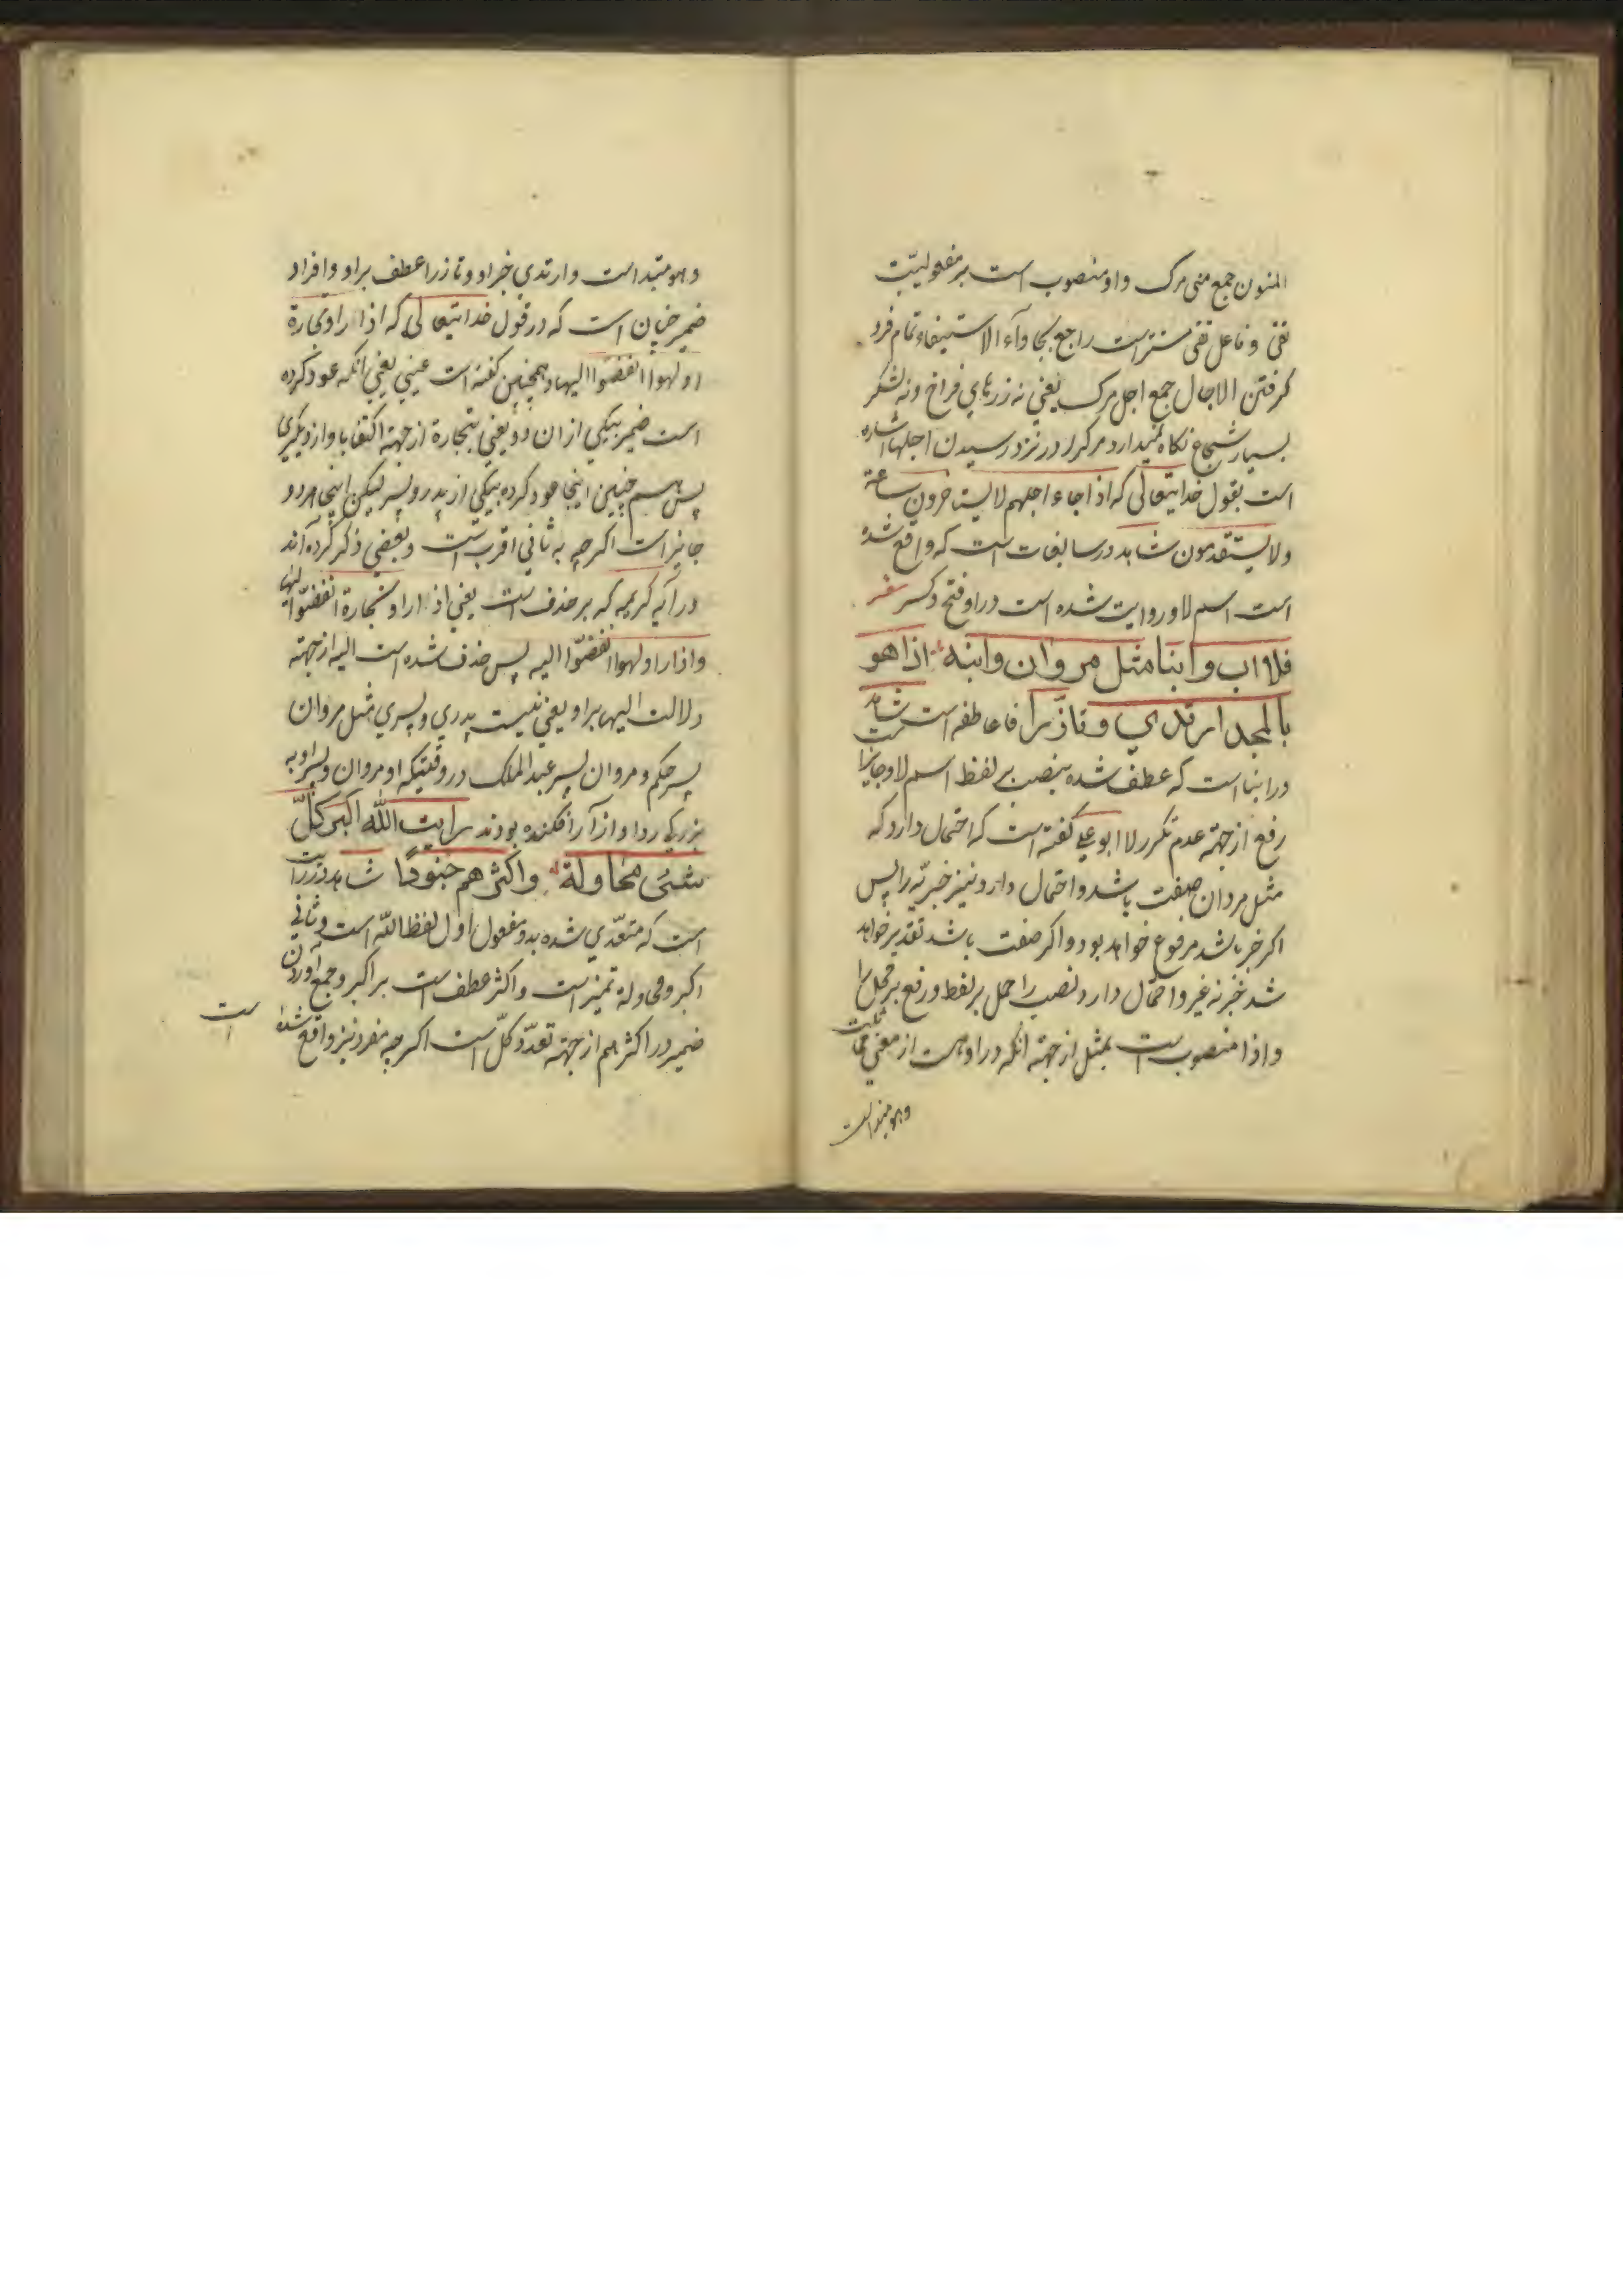 المنون جمع منی مرک واو منصوب است بر مفعولیت
تقی و فاعل تقی مستتر است راجع بجاواء الاستیفاء تمام فرو
کرفتن الاجال جمع اجل مرک یعنی نه زرهای فراخ و نه لشکر
بسیار شجاع نکاه نمیدارد مرکرا در نزد رسیدن اجلها اشاره
است بقول خدایتعالی که اذا جاء اجلهم لا یستاخرون ساعة
ولا یستقدمون شاهد در سابغات است که واقع شده
است اسم لا و روایت شده است در او فتح و کسر
فلا اب وابنا مثل مروان وابنه اذا هو
بالمجد ارتدی وتأزرا فا عاطفه است شاهد
در ابنا است که عطف شده بنصب بر لفظ اسم لا و جایز
رفع از جهة عدم تکرر لا ابو علی کفته است که احتمال دارد که
مثل مروان صفت باشد و احتمال دارد نیز خبریه را پس
اکر خبر باشد مرفوع خواهد بود و اکر صفت باشد تقدیر خواهد
شد خبر نه غیر و احتمال دارد نصب را حمل بر لفظ و رفع بر محل را
و اذا منصوب است بمثل از جهة انکه در او هست از معنی مماثلت
وهو مبتدا است
وهو مبتدا است وارتدی خبر او وتازرا عطف بر او وافراد
ضمیر چنان است که در قول خدایتعالی که اذا راو تجارة
او لهوا انفضوا الیها و همچنین کفته است عینی یعنی انکه عود کرده
است ضمیر بیکی از ان دو یعنی بتجارة از جهة اکتفا باو از دیکری
پس همچنین اینجا عود کرده بیکی از پدر و پسر لیکن اینجا هر دو
جایز است اکرچه به ثانی اقرب است و بعضی ذکر کرده اند
در آیه کریمه که بر حذف است یعنی اذا راو تجارة انفضوا الیها
واذا راو لهوا انفضوا الیه پس حذف شده است الیه از جهة
دلالت الیها بر او یعنی نیست پدری و پسری مثل مروان
پسر حکم و مروان پسر عبد الملک در وقتیکه او مروان و پسر او به
بزرکی ردا و ازار افکنده بودند رایت الله اکبر کل
شیء محاولة واکثرهم جنودا شاهد در رایت
است که متعدی شده بدو مفعول اول لفظ الله است و ثانی
اکبر و محاولة تمیز است و اکثر عطف است بر اکبر و جمع آوردن
ضمیر در اکثرهم از جهة تعدد کل است اکرچه مفرد نیز واقع شده
است